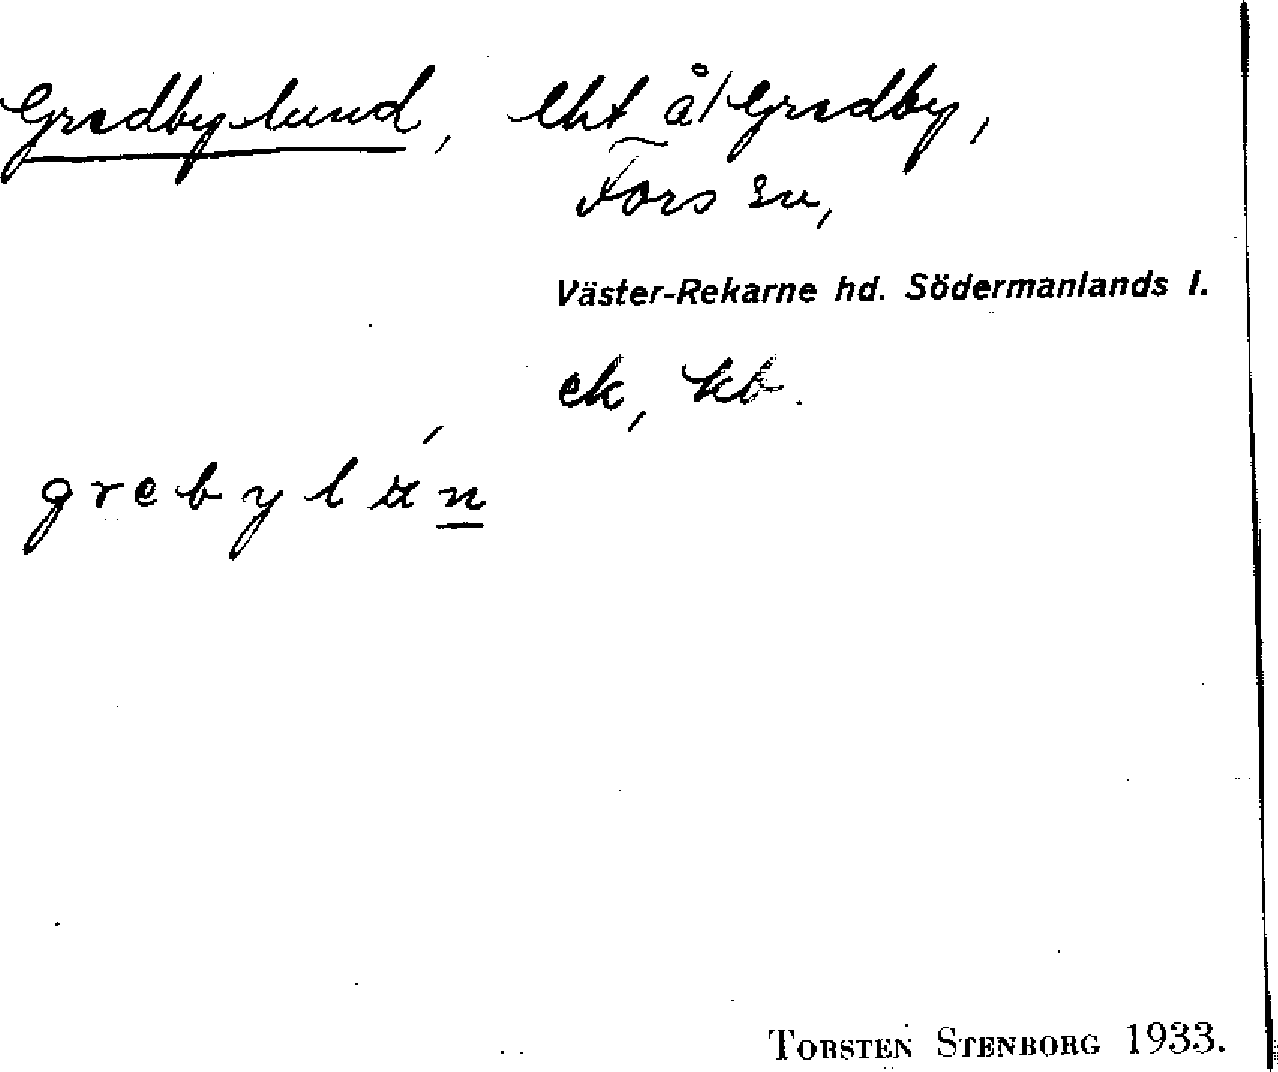 Gredbylund, lht å/Gredby,
Fors sn,
Väster-Rekarne hd. Södermanlands l.
ek, kb.
grebyl n
TORSTEN STENBORG 1933.